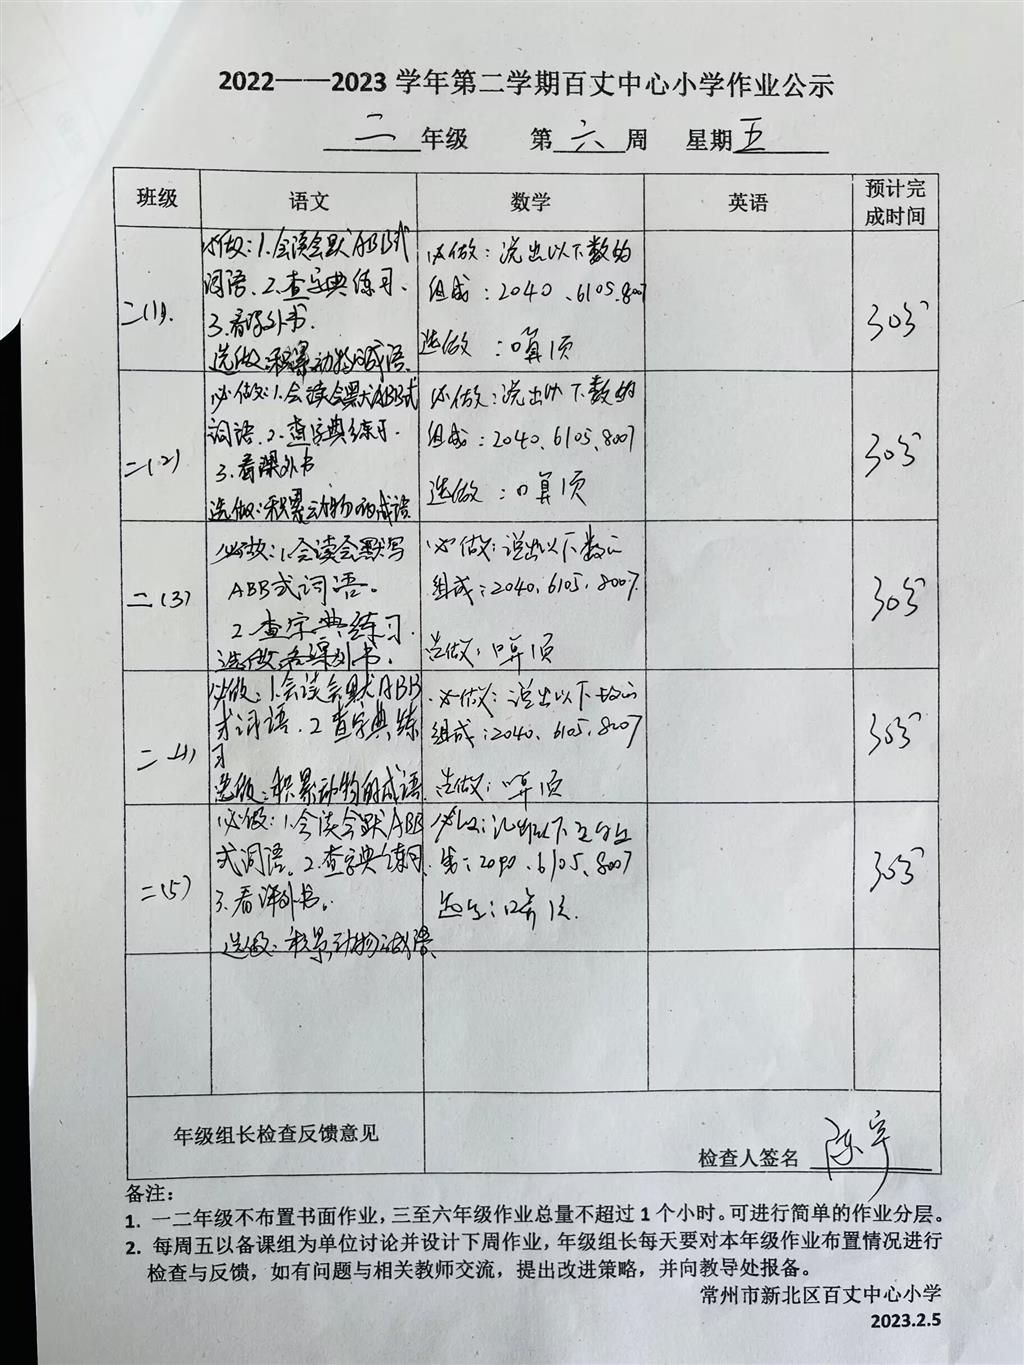 2022——2023 学年第二学期百丈中心小学作业公示
二 年级 第 六 周 星期 五
班级 语文 数学 英语 预计完
成时间
必做:1.会读会默ABB式
词语、2.查字典练习.
3.看课外书.
选做:积累动物的成语.
二(1).
必做:说出以下数的
组成:2040、6105、8007
选做:口算1页
30分
必做:1.会读会默ABB式
词语、2.查字典练习.
3.看课外书
选做:积累动物的成语
二(2)
必做:说出以下数的
组成:2040、6105、8007
选做:口算1页
30分
必做:1.会读会默写
ABB式词语。
2.查字典练习.
选做:看课外书.
二(3)
必做:说出以下数的
组成:2040、6105、8007.
选做:口算1页
30分
必做:1.会读会默ABB
式词语.2查字典练
习
选做:积累动物的成语.
二(4)
必做:说出以下数的
组成:2040、6105、8007
选做:口算1页
30分
必做:1.会读会默ABB
式词语、2.查字典练习.
3.看课外书.
选做:积累动物的成语
二(5)
2040、6105、8007
30分
年级组长检查反馈意见
检查人签名 陈宇
备注:
1. 一二年级不布置书面作业,三至六年级作业总量不超过 1 个小时。可进行简单的作业分层。
2. 每周五以备课组为单位讨论并设计下周作业,年级组长每天要对本年级作业布置情况进行
检查与反馈,如有问题与相关教师交流,提出改进策略,并向教导处报备。
常州市新北区百丈中心小学
2023.2.5